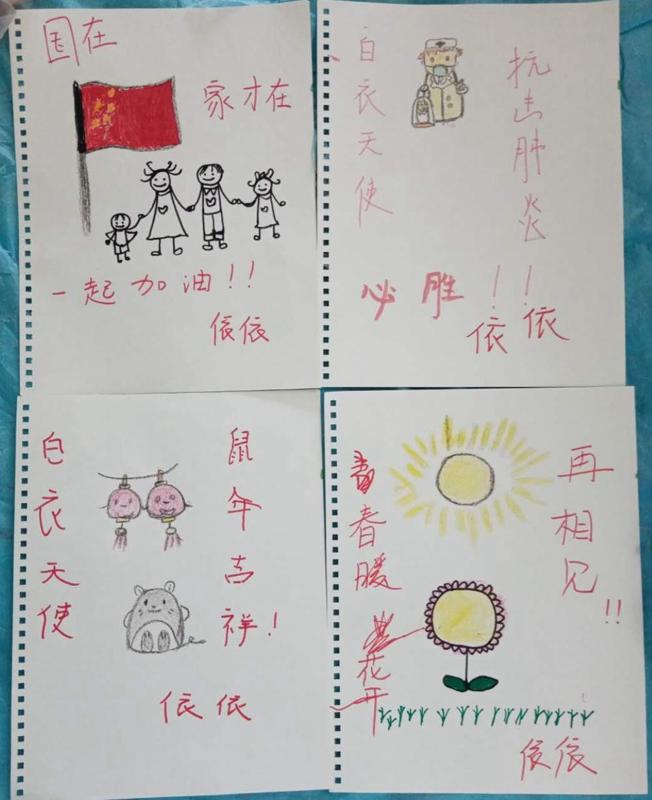 国在
家才在
一起加油!!
依依
白衣天使
抗击肺炎
必胜!!
依依
白衣天使
鼠年吉祥!
依依
春暖花开
再相见!!
依依